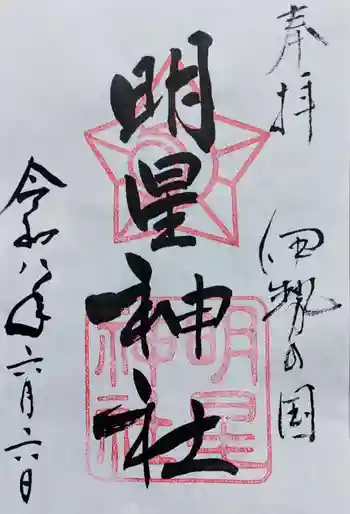 奉拝
伊勢の国
明星神社
明星神社
令和八年六月六日